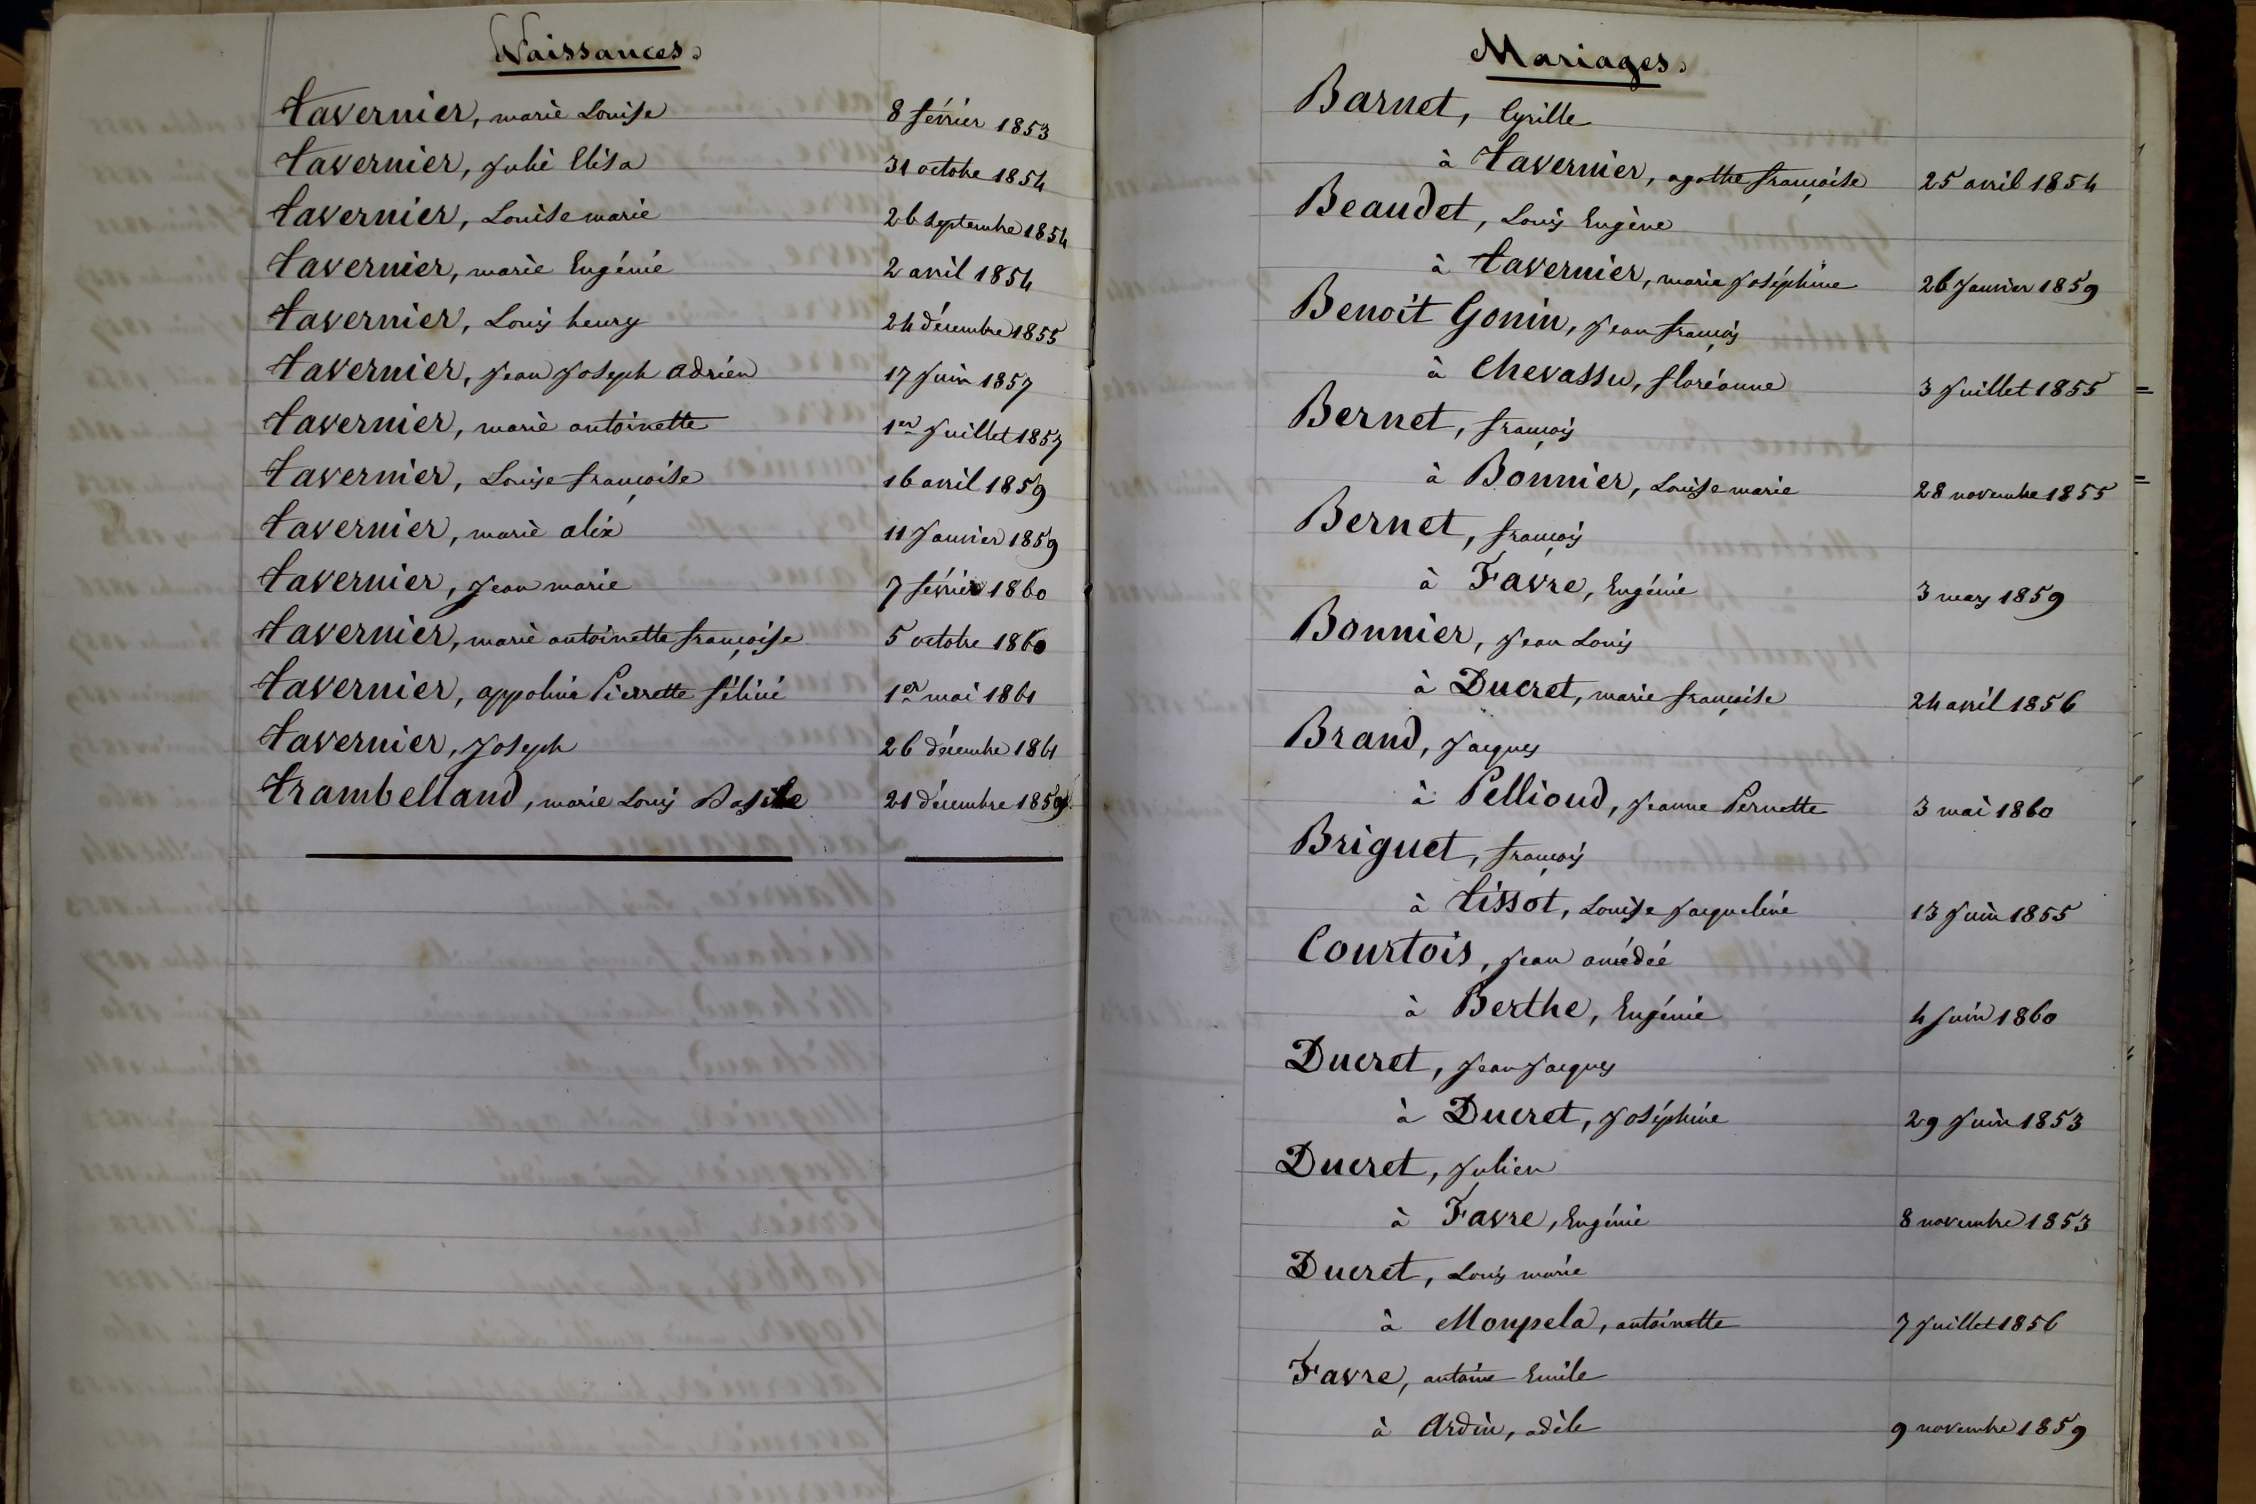 Naissances.
tavernier, marie Louise 8 février 1853
tavernier, Julie Elisa 31 octobre 1854
tavernier, Louise marie 26 septembre 1854
tavernier, marie Eugénie 2 avril 1854
tavernier, Louis henry 24 décembre 1855
tavernier, Jean Joseph adrien 17 Juin 1857
tavernier, marie antoinette 1er Juillet 1857
tavernier, Louise françoise 16 avril 1859
tavernier, marie alix 11 Janvier 1859
tavernier, Jean marie 7 février 1860
tavernier, marie antoinette françoise 5 octobre 1860
tavernier, appolinie Pierrette féline 1er mai 1861
tavernier, Joseph 26 décembre 1861
trambelland, marie Louis Basile 21 décembre 1859
Mariages.
Barnet, Cyrille
à tavernier, agathe françoise 25 avril 1854
Beaudet, Louis Eugène
à tavernier, marie Joséphine 26 Janvier 1859
Benoit Gonin, Jean françois
à Chevassu, floréanne 3 Juillet 1855
Bernet, françois
à Bonnier, Louise marie 28 novembre 1855
Bernet, françois
à Favre, Eugénie 3 mars 1859
Bonnier, Jean Louis
à Ducret, marie françoise 24 avril 1856
Brand, Jacques
à Pellioud, Jeanne Pernette 3 mai 1860
Briguet, françois
à tissot, Louise Jacqueline 13 Juin 1855
Courtois, Jean amédée
à Berthe, Eugénie 4 Juin 1860
Ducret, Jean Jacques
à Ducret, Joséphine 29 Juin 1853
Ducret, Julien
à Favre, Eugénie 8 novembre 1853
Ducret, Louis marie
à Monpela, antoinette 7 Juillet 1856
Favre, antoine Emile
à Ardin, adèle 9 novembre 1859